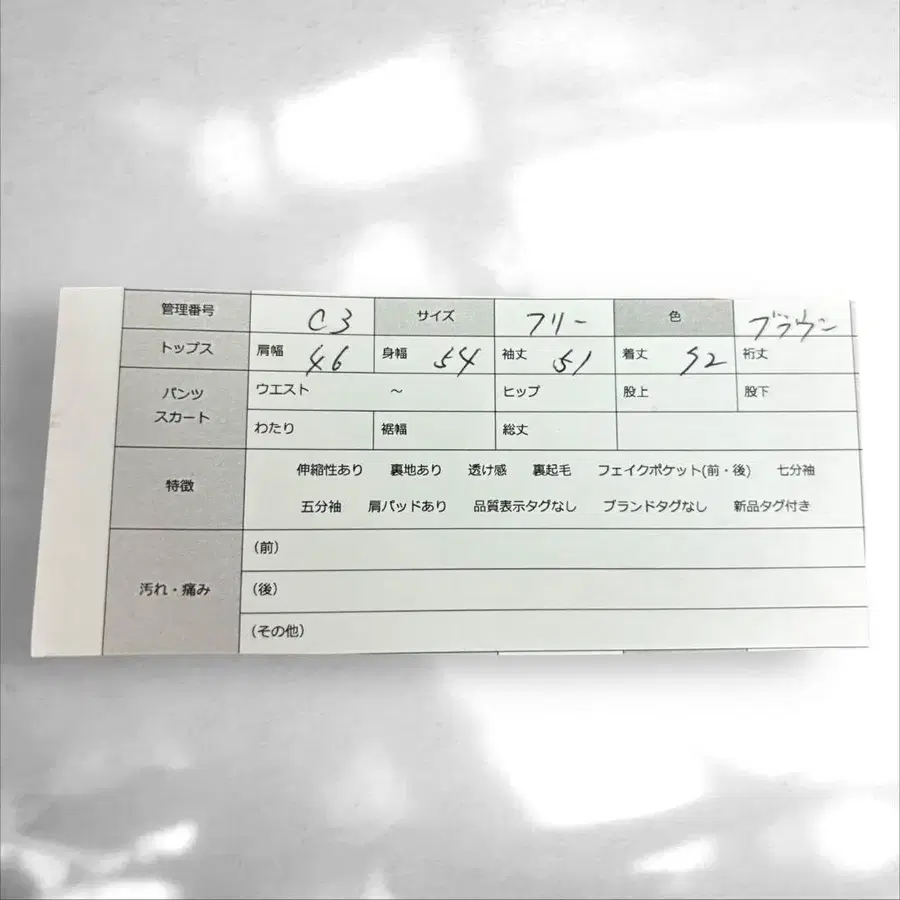 管理番号 C3 サイズ フリー 色 ブラウン
トップス 肩幅 46 身幅 54 袖丈 51 着丈 52 裄丈
パンツ スカート ウエスト ～ ヒップ 股上 股下
わたり 裾幅 総丈
特徴 伸縮性あり 裏地あり 透け感 裏起毛 フェイクポケット(前・後) 七分袖
五分袖 肩パッドあり 品質表示タグなし ブランドタグなし 新品タグ付き
汚れ・痛み (前)
(後)
(その他)